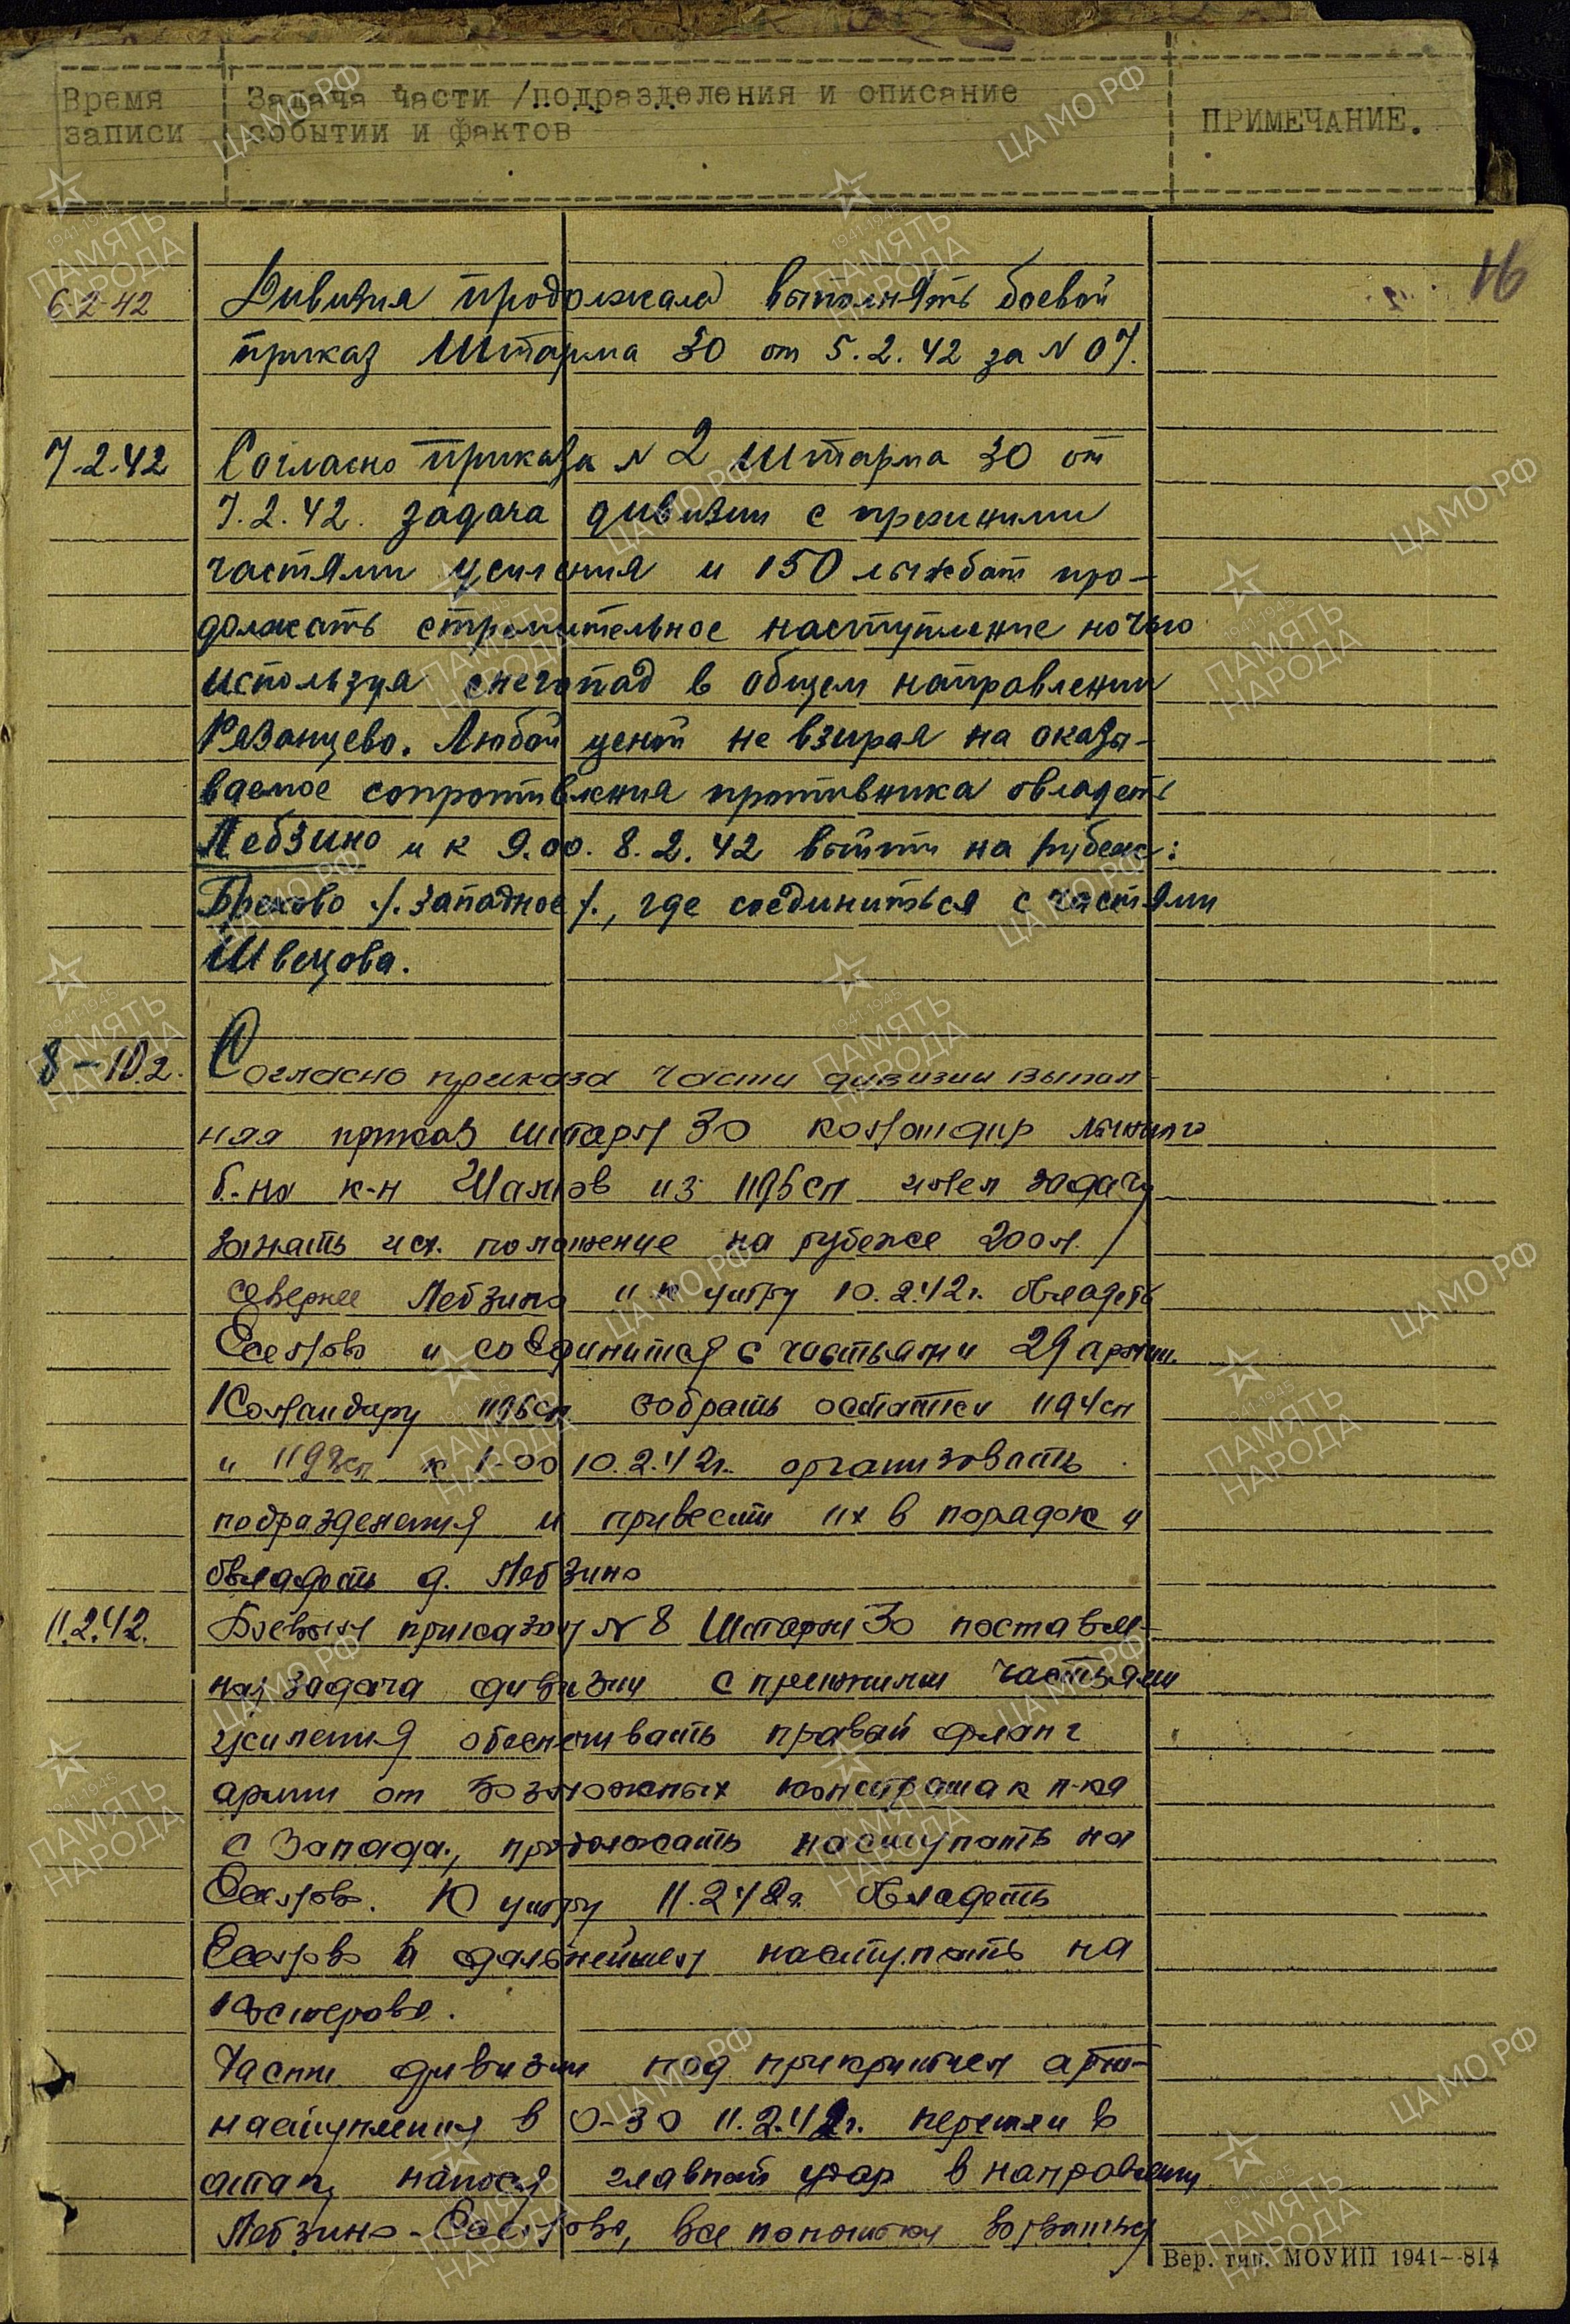 Время записи
Задача части /подразделения и описание событий и фактов
ПРИМЕЧАНИЕ.
16
6-2-42 Дивизия продолжала выполнять боевой
приказ Штарма 30 от 5.2.42 за N 07.
7.2.42 Согласно приказа N 2 Штарма 30 от
7.2.42. задача дивизии с прежними
частями усиления и 150 лыжбат про-
должать стремительное наступление ночью
используя снегопад в общем направлении
Рязанцево. Любой ценой не взирая на оказы-
ваемое сопротивления противника овладеть
Лебзино и к 9.00. 8.2.42 выйти на рубеж:
Брехово /.западное/., где соединиться с частями
Швецова.
8-10.2. Согласно приказа части дивизии выпол-
няя приказ штарм 30 командир лыжного
б-на к-н из 1196сп имел задачу
занять исх. положение на рубеже 200м.
севернее Лебзино и к утру 10.2.42г. овладеть
Есемово и соединится с частьями 29 армии.
Командиру 1196сп собрать остатки 1194сп
и к 1-00 10.2.42г. организовать
подразделения и привести их в порядок и
овладеть д. Лебзино
11.2.42. Боевым приказом N 8 Штарм 30 поставле-
на задача дивизии с прежними частьями
усиления обеспечивать правый фланг
армии от возможных контратак п-ка
с Запада, продолжать наступать на
Есемово. К утру 11.2.42г. овладеть
Есемово в дальнейшем наступать на
Костерово.
Части дивизии под прикрытием арт-
наступления в 0-30 11.2.42г. перешли в
атаку нанося главный удар в направлении
Лебзино-Есемово, все попытки ворваться
Вер. тип. МОУИП 1941-814
ЦА МО РФ
ПАМЯТЬ НАРОДА
1941-1945